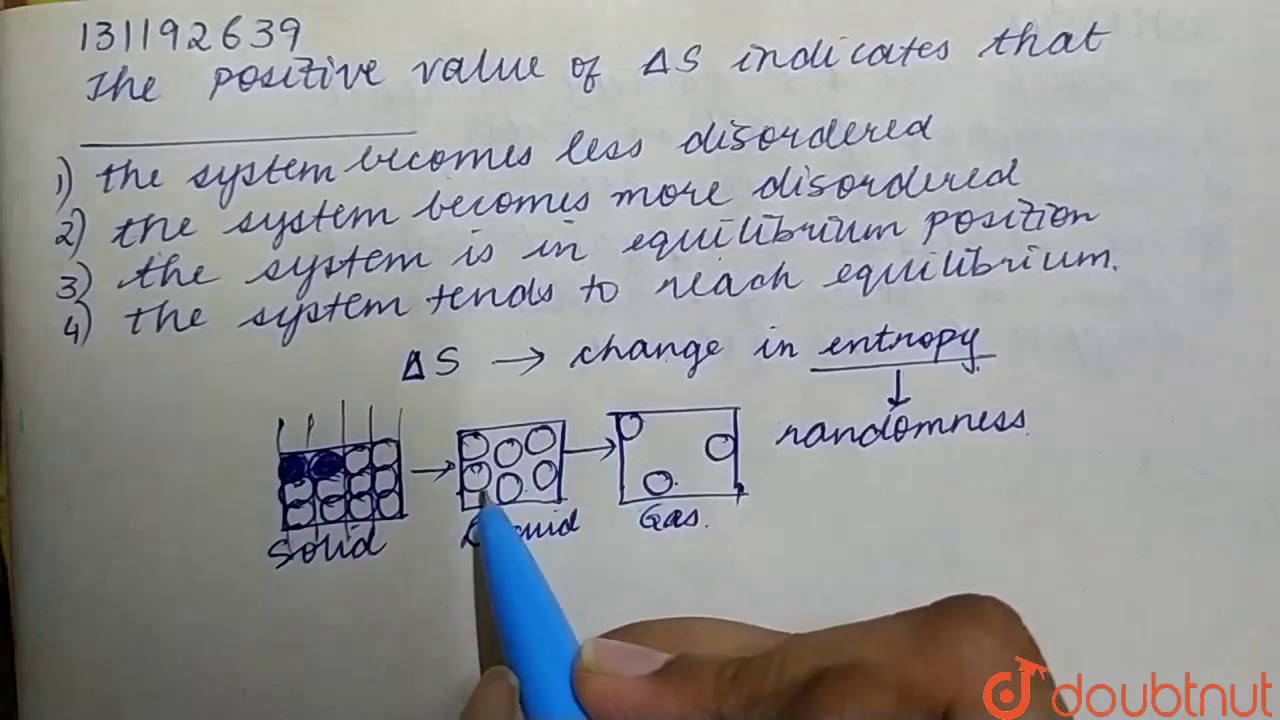 131192639
The positive value of ΔS indicates that
1) the system becomes less disordered
2) the system becomes more disordered
3) the system is in equilibrium position
4) the system tends to reach equilibrium.
ΔS → change in entropy.
randomness.
Solid
Gas.
doubtnut